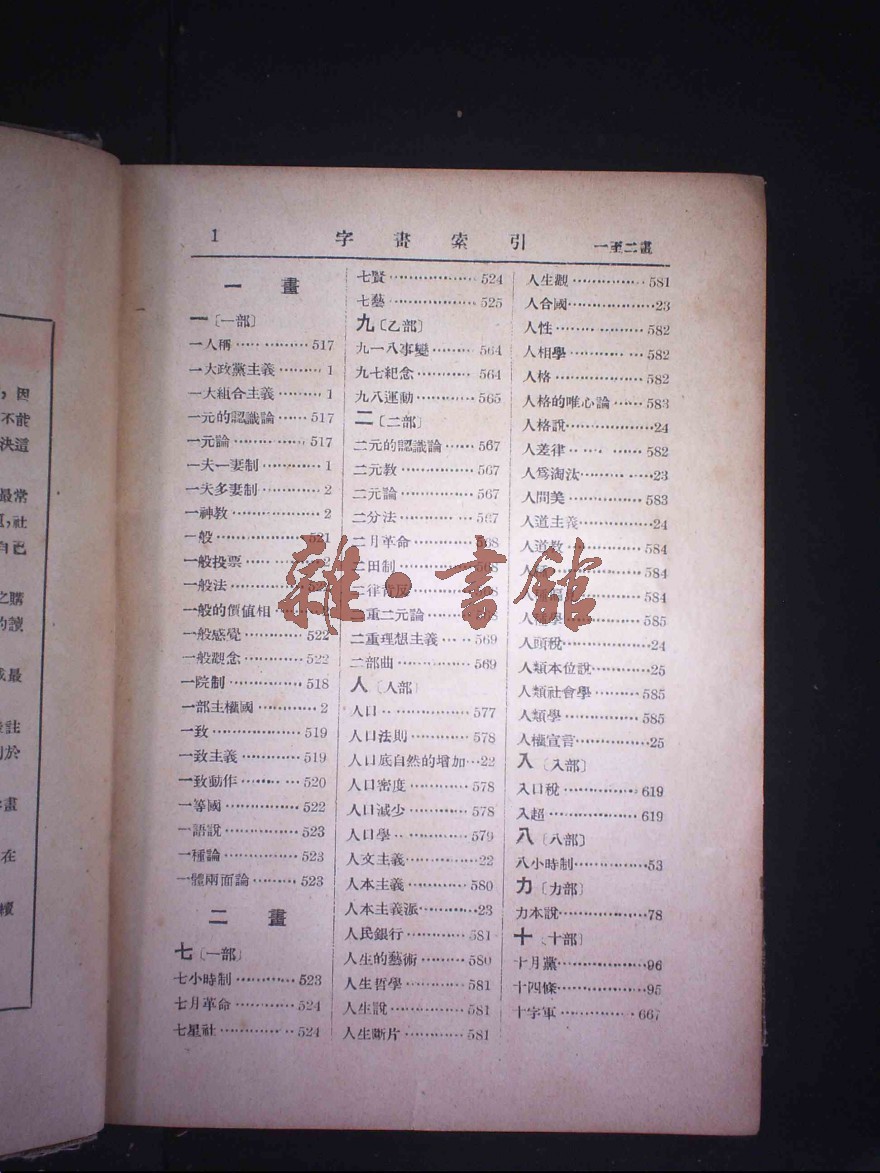 1
字畫索引
一至二畫
一畫
一〔一部〕
一人稱…………517
一大政黨主義………1
一大組合主義………1
一元的認識論……517
一元論…………517
一夫一妻制………1
一夫多妻制…………2
一神教…………2
一般…………521
一般投票…………2
一般法
一般的價值相
一般感覺………522
一般觀念………522
一院制…………518
一部主權國…………2
一致…………519
一致主義………519
一致動作………520
一等國…………522
一語說…………523
一種論…………523
一體兩面論………523
二畫
七〔一部〕
七小時制…………523
七月革命…………524
七星社…………524
七賢…………524
七藝…………525
九〔乙部〕
九一八事變………564
九七紀念………564
九八運動………565
二〔二部〕
二元的認識論……567
二元教…………567
二元論…………567
二分法…………567
二月革命………568
二田制…………568
二律背反
二重二元論
二重理想主義…569
二部曲…………569
人〔人部〕
人口…………577
人口法則………578
人口底自然的增加…22
人口密度………578
人口減少………578
人口學…………579
人文主義…………22
人本主義………580
人本主義派………23
人民銀行………581
人生的藝術………580
人生哲學………581
人生說…………581
人生斷片…………581
人生觀…………581
人合國…………23
人性…………582
人相學…………582
人格…………582
人格的唯心論……583
人格說…………24
人差律…………582
人爲淘汰…………23
人間美…………583
人道主義…………24
人道教…………584
584
585
人頭稅…………24
人類本位說………25
人類社會學………585
人類學…………585
人權宣言…………25
入〔入部〕
入口稅…………619
入超…………619
八〔八部〕
八小時制…………53
力〔力部〕
力本說…………78
十〔十部〕
十月黨…………96
十四條…………95
十字軍…………667
雜·書館
，因
不能
決這
最常
,社
自己
之購
的讀
成最
註
於
畫
在
續